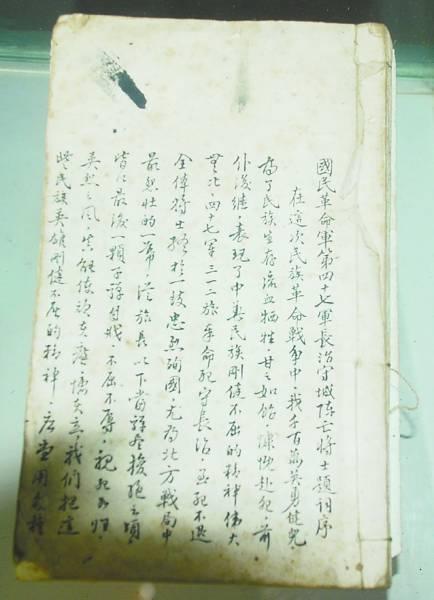 國民革命軍第四十七軍長治守城陣亡將士題詞序
在這次民族革命戰爭中，我千百萬英勇健兒，
為了民族生存流血犧牲，甘之如飴，慷慨赴死，前
仆後繼，表現了中華民族剛健不屈的精神偉大
無比，四十七軍三一二旅奉命死守長治，至死不退
全體將士殲於一，忠烈殉國，尤為北方戰局中
最悲壯的一幕，從旅長以下當彈盡援絕之頃，
皆以最後一顆子彈，不屈不辱，視死如歸，
英烈之風，實能使頑夫廉，懦夫立，我們把這
些民族英雄剛健不屈的精神，應當用各種